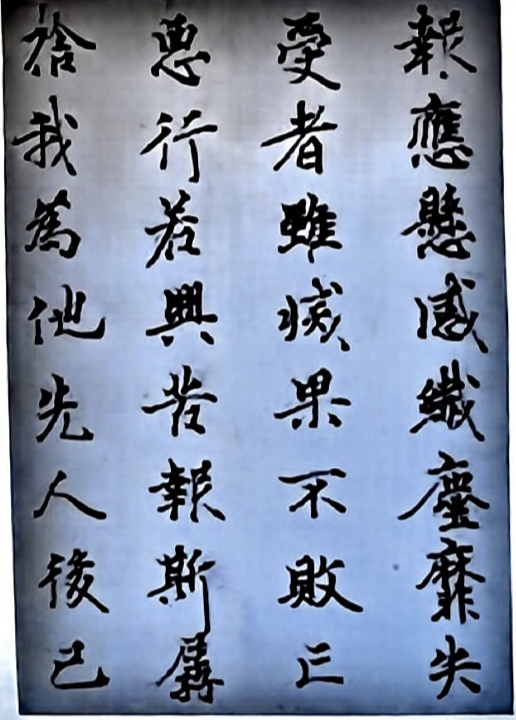 報應懸感纖塵靡失
受者雖滅果不敗亡
惡行若興苦報斯孱
捨我為他先人後己